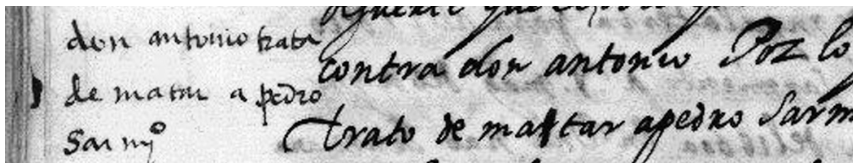 don antonio trata
de matar a pedro
Sarmto
contra don antonio Por lo
trato de matar apedro Sarm